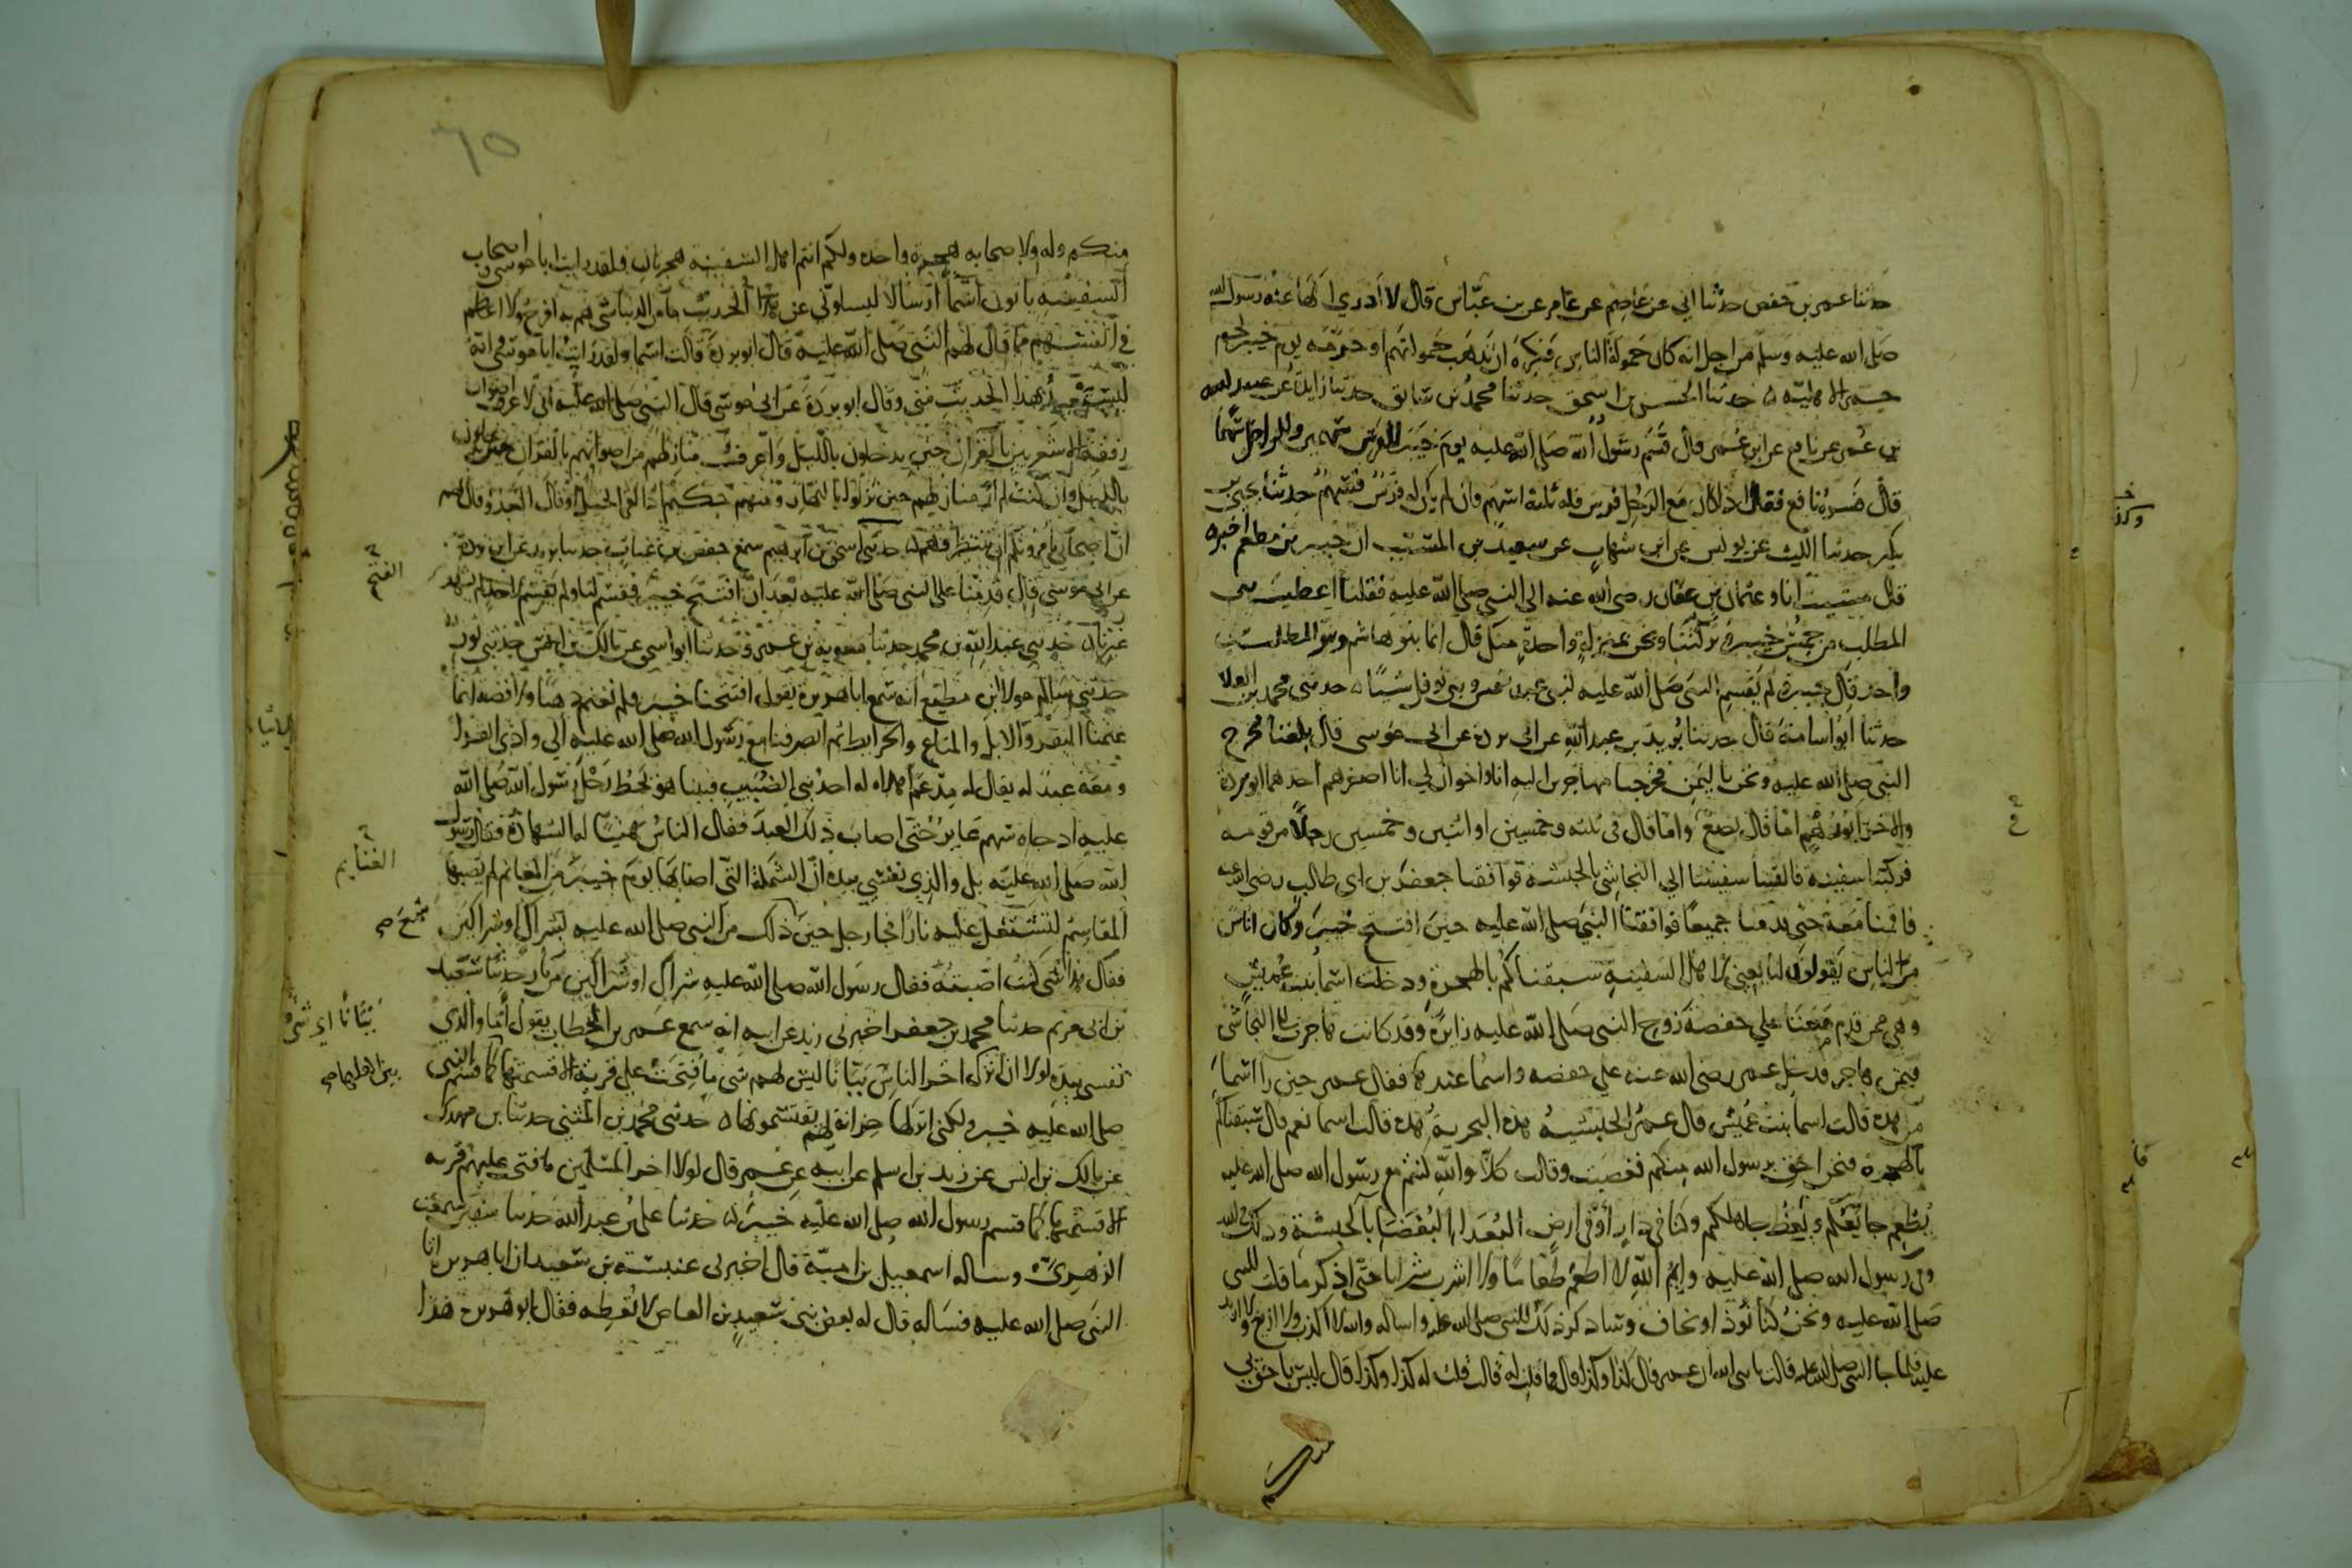 حدثنا عمر بن حفص حدثنا ابي عن عاصم عن عامر عن بن عباس قال لا ادري انهى عنه رسول الله
صلى الله عليه وسلم من اجل انه كان حمولة الناس فكره ان تذهب حمولتهم او حرمه يوم خيبر لحوم
حمر الاهلية حدثنا الحسن بن اسحق حدثنا محمد بن سابق حدثنا زايدة عن عبيد الله
بن عمر عن نافع عن ابن عمر قال قسم رسول الله صلى الله عليه يوم خيبر للفرس سهمين وللراجل سهما
قال فسره نافع فقال اذا كان مع الرجل فرس فله ثلثة اسهم فان لم يكن له فرس فسهم حدثنا يحيى بن
بكير حدثنا الليث عن يونس عن ابن شهاب عن سعيد بن المسيب ان جبير بن مطعم اخبره
قال مشيت انا وعثمان بن عفان رضي الله عنه الى النبي صلى الله عليه فقلنا اعطيت بني
المطلب من خمس خيبر وتركتنا ونحن بمنزلة واحدة منك قال انما بنو هاشم وبنو المطلب شي
واحد قال جبير لم يقسم النبي صلى الله عليه لبني عبد شمس وبني نوفل شيئا حدثني محمد بن العلا
حدثنا ابو اسامة قال حدثنا بريد بن عبد الله عن ابي بردة عن ابي موسى قال بلغنا مخرج
النبي صلى الله عليه ونحن باليمن فخرجنا مهاجرين اليه انا واخوان لي انا اصغرهم احدهما ابو بردة
والاخر ابو رهم اما قال بضع واما قال في ثلثه وخمسين او اثنين وخمسين رجلا من قومي
فركبنا سفينة فالقتنا سفينتنا الى النجاشي بالحبشة فوافقنا جعفر بن ابي طالب رضي الله عنه
فاقمنا معه حتى قدمنا جميعا فوافقنا النبي صلى الله عليه حين افتتح خيبر وكان اناس
من الناس يقولون لنا يعني لاهل السفينة سبقناكم بالهجرة ودخلت اسما بنت عميس
وهي ممن قدم معنا على حفصة زوج النبي صلى الله عليه زايرة وقد كانت هاجرت الى النجاشي
فيمن هاجر فدخل عمر رضي الله عنه على حفصه واسما عندها فقال عمر حين راا اسما
من هذه قالت اسما بنت عميس قال عمر الحبشية هذه البحرية هذه قالت اسما نعم قال سبقناكم
بالهجرة فنحن احق برسول الله منكم فغضبت وقالت كلا والله كنتم مع رسول الله صلى الله عليه
يطعم جايعكم ويعظ جاهلكم وكنا في دار او في ارض البعدا البغضا بالحبشة وذلك في الله
وفي رسول الله صلى الله عليه وايم الله لا اطعم طعاما ولا اشرب شرابا حتى اذكر ما قلت للنبي
صلى الله عليه ونحن كنا نوذا ونخاف وساذكر ذلك للنبي صلى الله عليه واساله والله لا اكذب ولا ازيغ ولا ازيد
عليه فلما جا النبي صلى الله عليه قالت يا نبي الله ان عمر قال كذا وكذا قال فما قلت له قالت قلت له كذا وكذا قال ليس باحق بي
٦٥
منكم وله ولاصحابه هجرة واحدة ولكم انتم اهل السفينة هجرتان فلقد رايت ابا موسى واصحاب
السفينة ياتون اسما ارسالا ليسالوني عن هذا الحديث ما من الدنيا شي هم به افرح ولا اعظم
في انفسهم مما قال لهم النبي صلى الله عليه قال ابو بردة قالت اسما ولقد رايت ابا موسى انه
ليستعيد هذا الحديث مني وقال ابو بردة عن ابي موسى قال النبي صلى الله عليه اني لا عرف اصوات
رفقة الاشعريين بالقران حين يدخلون بالليل واعرف منازلهم من اصواتهم بالقران حين ينزلون
بالليل وان كنت لم ار منازلهم حين نزلوا بالنهار ومنهم حكيم اذا لقي الخيل او قال العدو قال لهم
ان اصحابي يامرونكم ان تنتظروهم حدثني اسحق بن ابرهيم سمع حفص بن غياث حدثنا بريد عن ابي بردة
عن ابي موسى قال قدمنا على النبي صلى الله عليه بعد ان افتتح خيبر فقسم لنا ولم يقسم لاحد لم يشهد الفتح
غيرنا حدثني عبد الله بن محمد حدثنا معوية بن عمرو وحدثنا ابو اسحق عن مالك بن انس حدثني ثور
حدثني سالم مولا ابن مطيع انه سمع ابا هريرة يقول افتتحنا خيبر فلم نغنم ذهبا ولا فضه انما
غنمنا البقر والابل والمتاع والحرايط ثم انصرفنا مع رسول الله صلى الله عليه الى وادي القرا
ومعه عبد له يقال له مدعم اهداه له احد بني الضبيب فبينا هو يحط رحل رسول الله صلى الله
عليه اذ جاه سهم عاير حتى اصاب ذلك العبد فقال الناس هنيئا له الشهادة فقال رسول
الله صلى الله عليه بل والذي نفسي بيده ان الشملة التي اصابها يوم خيبر من المغانم لم تصبها
الغنايم
المقاسم لتشتعل عليه نارا فجا رجل حين ذلك من النبي صلى الله عليه بشراك او شراكين
سمع صح
فقال هذا شي كنت اصبته فقال رسول الله صلى الله عليه شراك او شراكين من نار حدثنا سعيد
بن ابي مريم حدثنا محمد بن جعفر اخبرني زيد عن ابيه انه سمع عمر بن الخطاب يقول اما والذي
ببانا اي شي
نفسي بيده لولا ان اترك اخر الناس ببانا ليس لهم شي ما فتحت علي قرية الا قسمتها كما قسم النبي
صلى الله عليه خيبر ولكني اتركها خزانة لهم يقتسمونها حدثني محمد بن المثنى حدثنا بن مهدي
عن مالك بن انس عن زيد بن اسلم عن ابيه عن عمر قال لولا اخر المسلمين ما فتحت عليهم قرية
الا قسمتها كما قسم رسول الله صلى الله عليه خيبر حدثنا علي بن عبد الله حدثنا سفين سمعت
الزهري وساله اسمعيل بن امية قال اخبرني عنبسة بن سعيد ان ابا هريرة اتا
النبي صلى الله عليه فساله قال له بعض بني سعيد بن العاص لا تعطه فقال ابو هريرة هذا